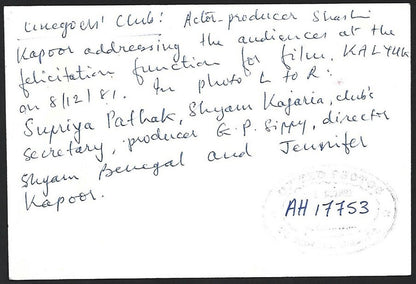 Cinegoers' Club: Actor-producer Shashi
Kapoor addressing the audiences at the
felicitation function for film, KALYUG
on 8/12/81. In photo L to R:
Supriya Pathak, Shyam Kajaria, club's
secretary, producer G.P. Sippy, director
Shyam Benegal and Jennifer
Kapoor.
AH 17753